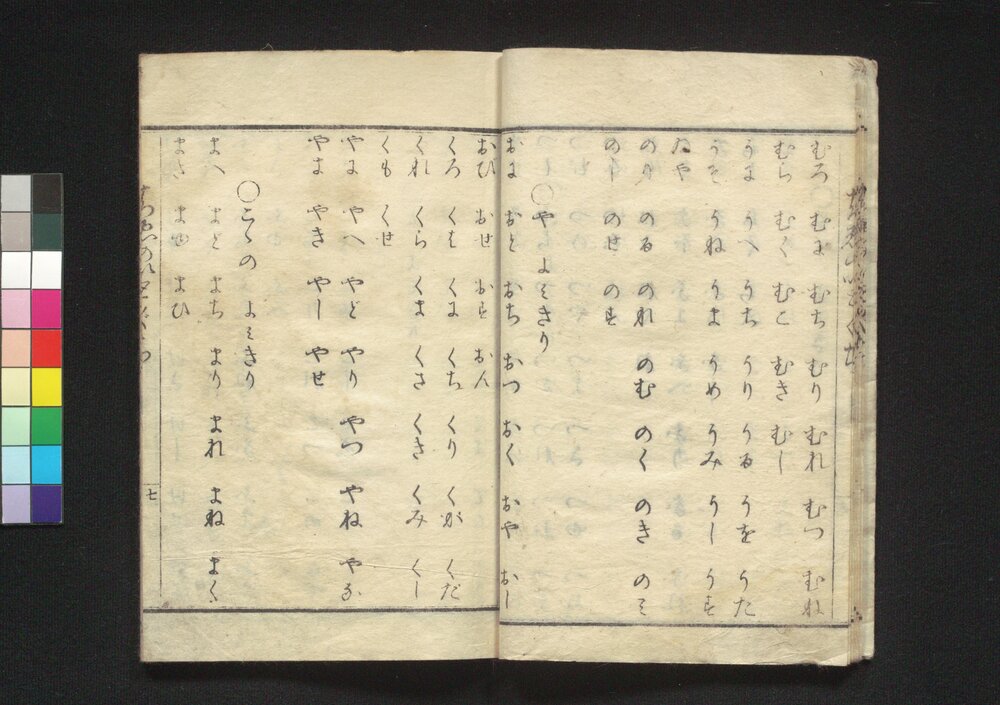 むろ むに むち むり むれ むつ むね
むら むく むこ むき むし
うに うへ うち うり うる うを うた
うそ うね うま うめ うみ うし うす
ゐや
のり のる のれ のむ のく のき のみ
のし のせ のす
○や よみきり
おに おと おち おつ おく おや おし
おひ おせ おす おん
くろ くは くに くち くり くが くだ
くれ くら くま くさ くき くみ くし
くも くせ
やに やへ やど やり やつ やね やな
やま やき やし やせ
○こゝの よみきり
まへ まど まち まり まれ まね まく
まさ まゆ まひ
七